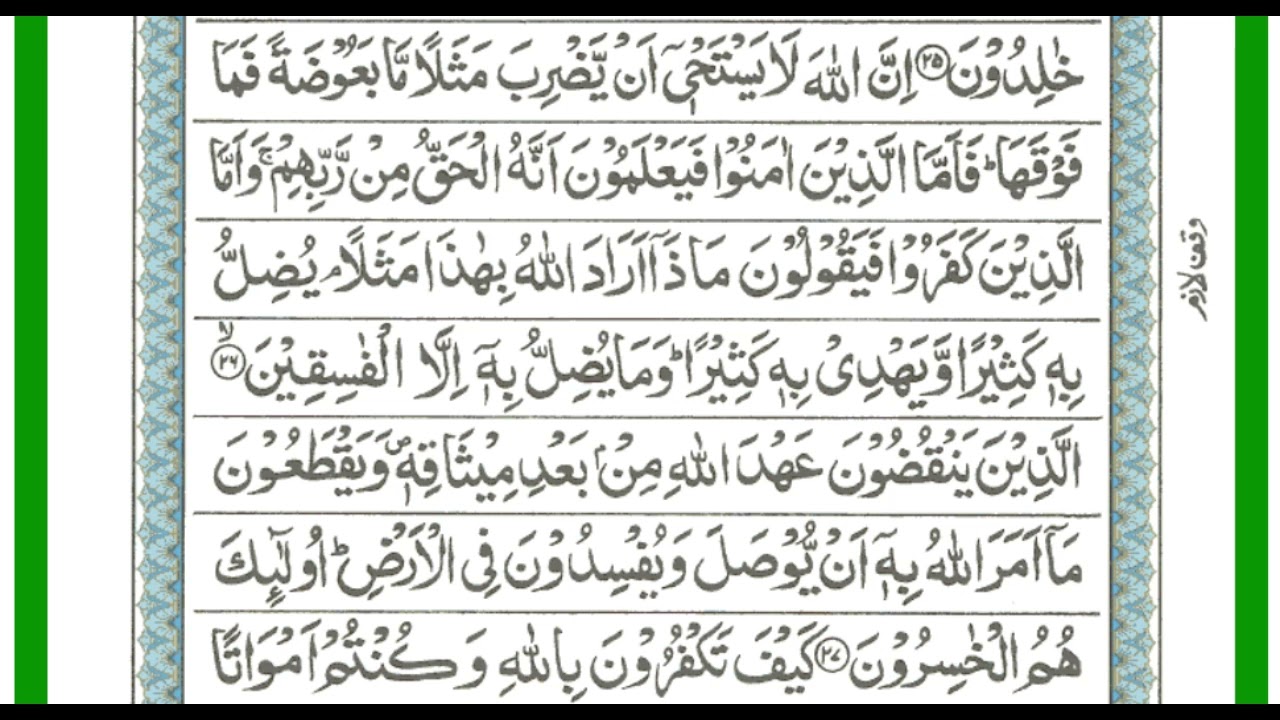 خٰلِدُوۡنَ ﴿۲۵﴾ اِنَّ اللّٰهَ لَا يَسۡتَحۡىٖۤ اَنۡ يَّضۡرِبَ مَثَلًا مَّا بَعُوۡضَةً فَمَا
فَوۡقَهَا ؕ فَاَمَّا الَّذِيۡنَ اٰمَنُوۡا فَيَعۡلَمُوۡنَ اَنَّهُ الۡحَقُّ مِنۡ رَّبِّهِمۡ ۚ وَاَمَّا
الَّذِيۡنَ كَفَرُوۡا فَيَقُوۡلُوۡنَ مَاذَاۤ اَرَادَ اللّٰهُ بِهٰذَا مَثَلًا ۘ يُضِلُّ
بِهٖ كَثِيۡرًا وَّيَهۡدِىۡ بِهٖ كَثِيۡرًا ؕ وَمَا يُضِلُّ بِهٖۤ اِلَّا الۡفٰسِقِيۡنَ ۙ ﴿۲۶﴾
الَّذِيۡنَ يَنۡقُضُوۡنَ عَهۡدَ اللّٰهِ مِنۡۢ بَعۡدِ مِيۡثَاقِهٖ ۪ وَيَقۡطَعُوۡنَ
مَاۤ اَمَرَ اللّٰهُ بِهٖۤ اَنۡ يُّوۡصَلَ وَيُفۡسِدُوۡنَ فِى الۡاَرۡضِ ؕ اُولٰٓٮِٕكَ
هُمُ الۡخٰسِرُوۡنَ ﴿۲۷﴾ كَيۡفَ تَكۡفُرُوۡنَ بِاللّٰهِ وَڪُنۡتُمۡ اَمۡوَاتًا
وقف لازم